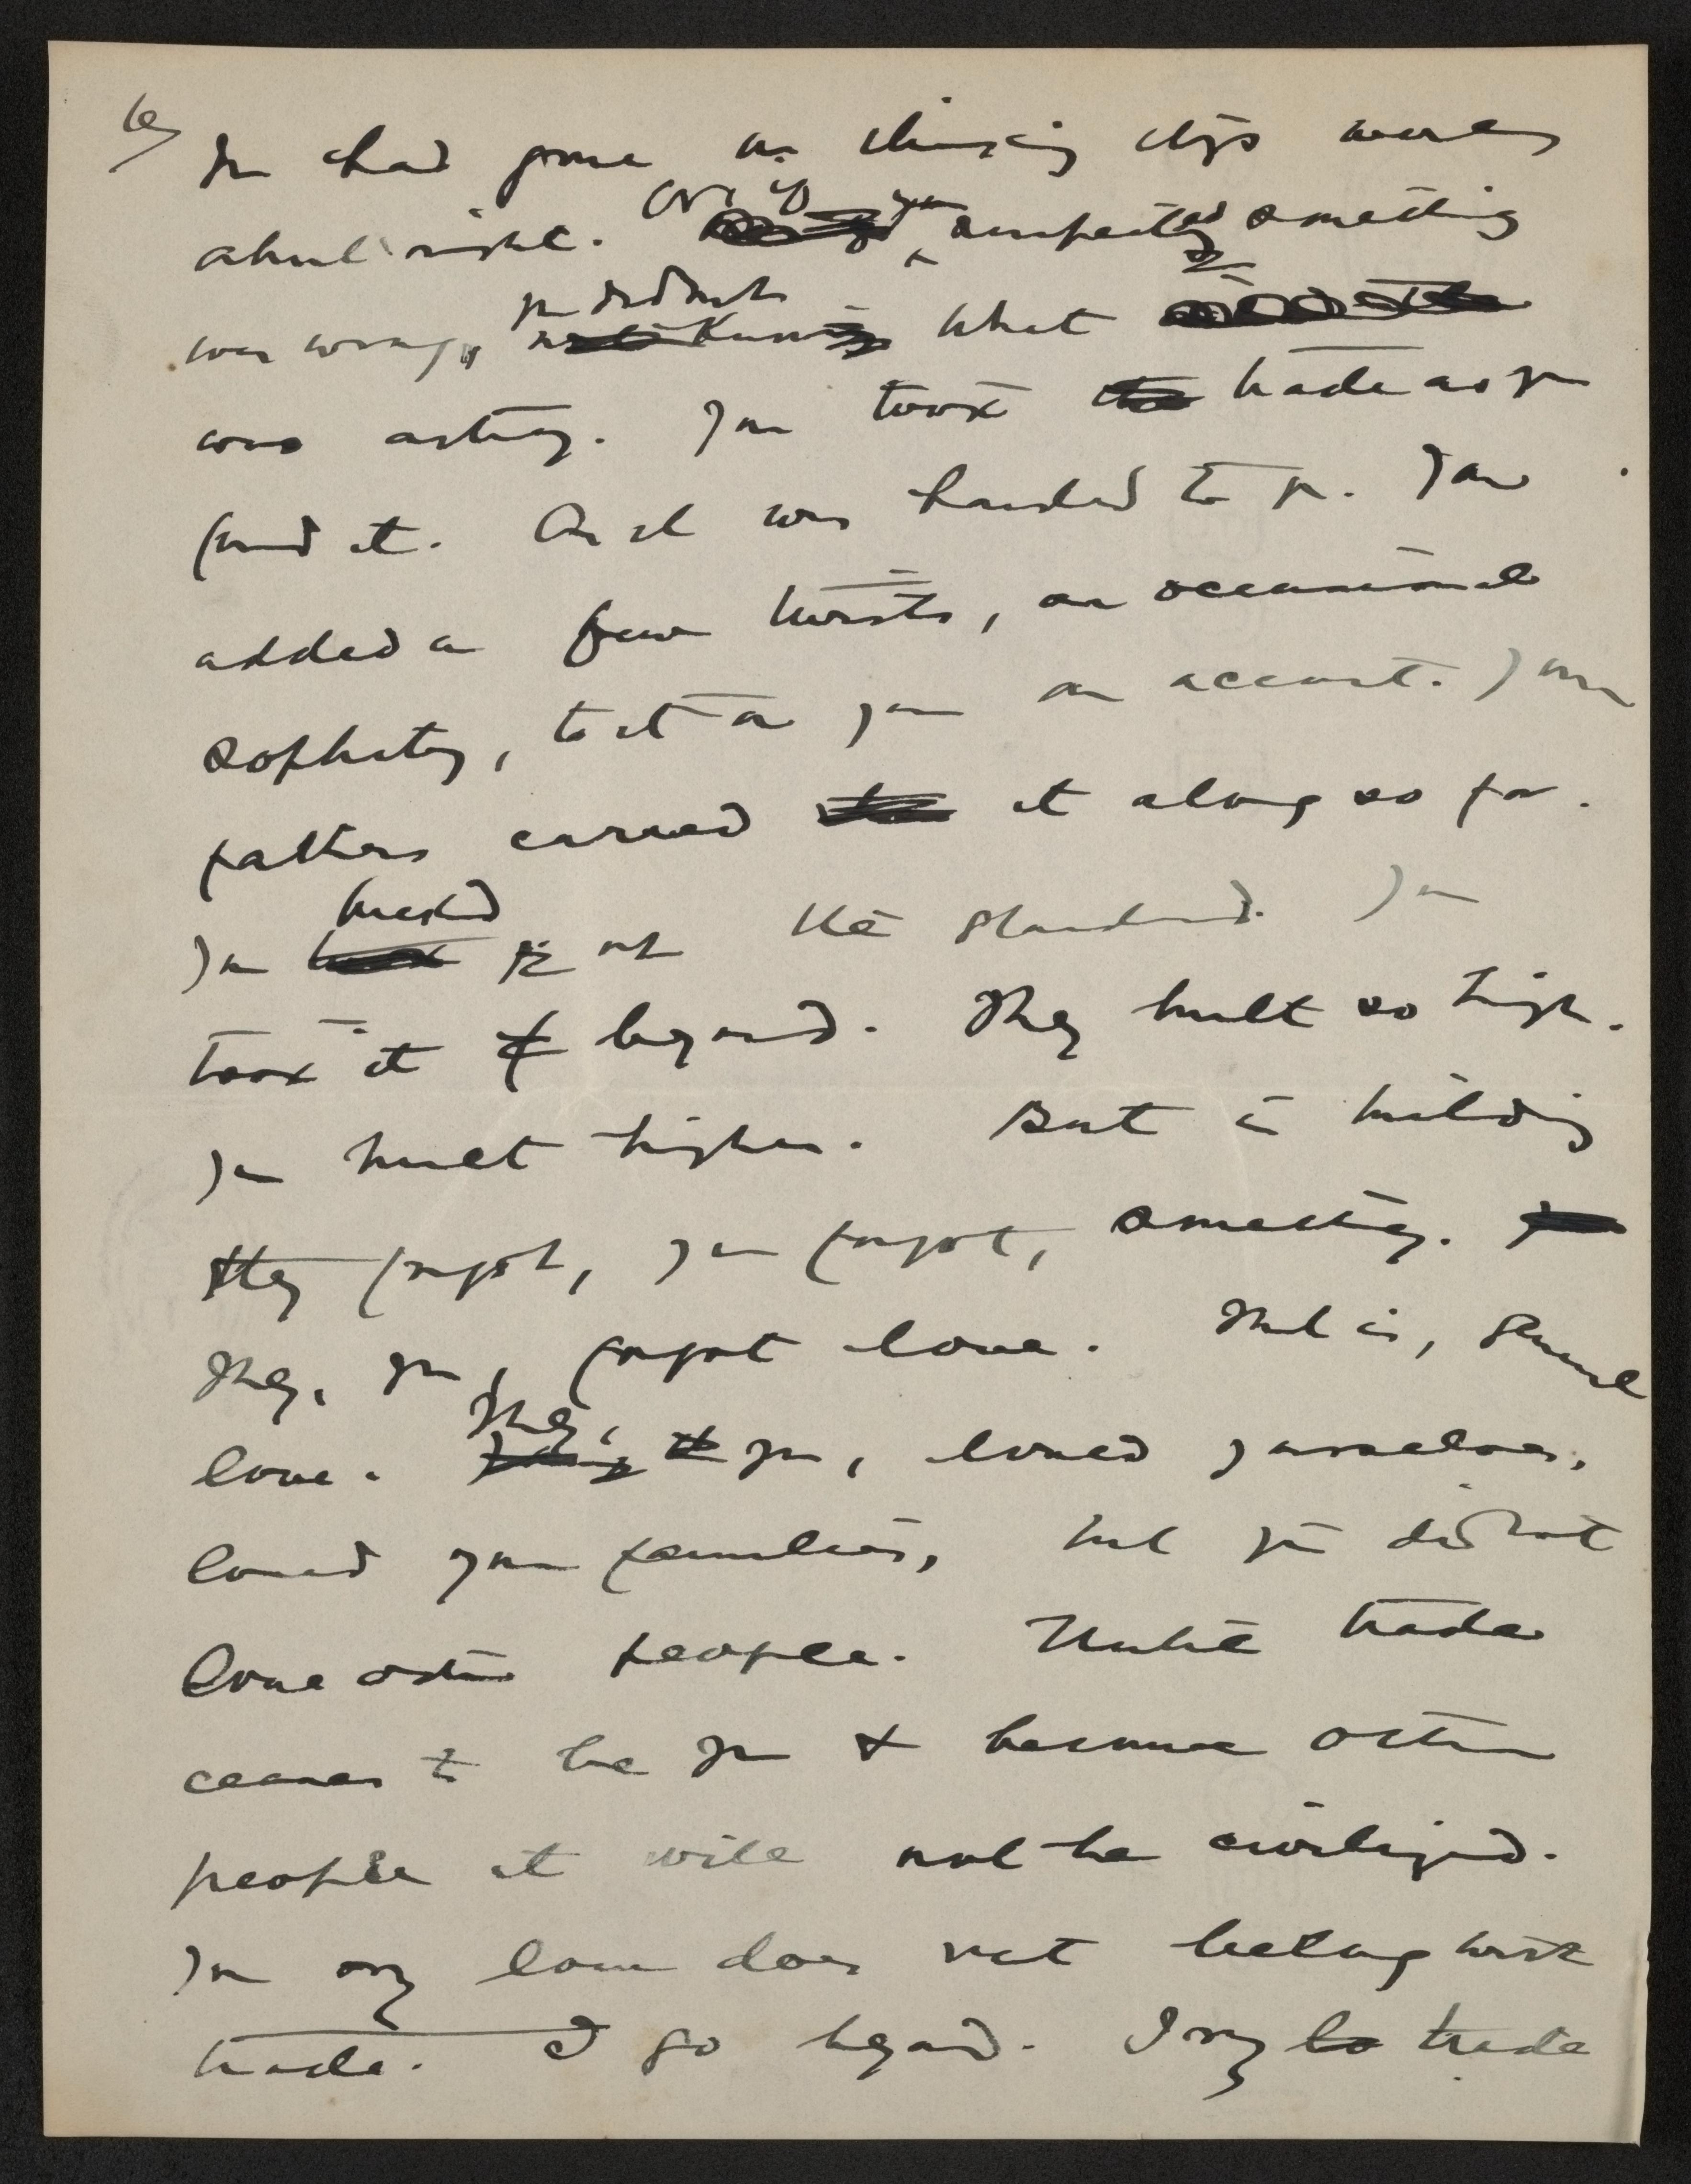 6)
You had gone on thinking things were
about right. Or if you suspected something
was wrong, you didn't know what
was acting. You took the trade as you
found it. As it was handed to you. You
added a few twists, an occasional
sophistry, to it on your own account. Your
fathers carried it along so far.
You buried up the standard. You
took it beyond. They built so high.
You built higher. But in building
they forgot, you forgot, something.
They, you, forgot love. That is, general
love. They, you, loved yourselves,
loved your families, but you did not
love other people. Until trade
ceases to be you & becomes other
people it will not be civilized.
You say love does not belong with
trade. I go beyond. I say to trade